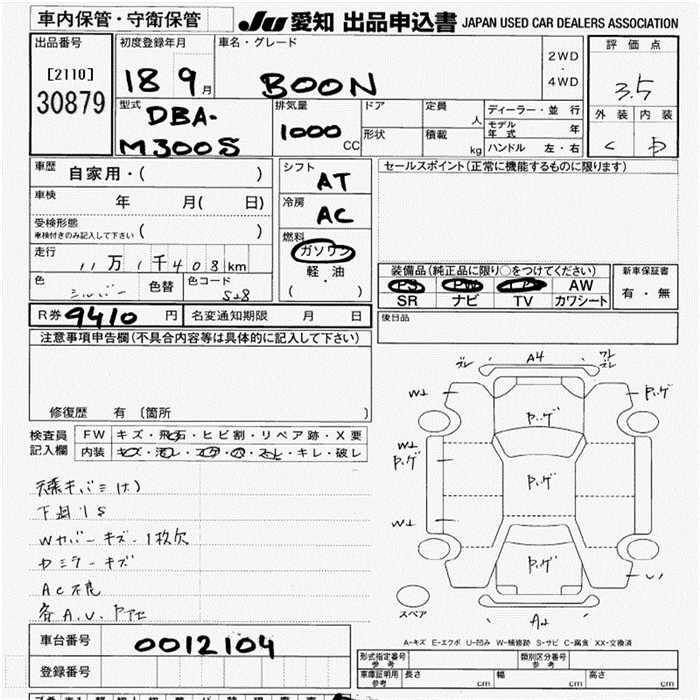 車内保管・守衛保管
JU 愛知 出品申込書 JAPAN USED CAR DEALERS ASSOCIATION
出品番号 初度登録年月 車名・グレード 評価点
[2110] 18 9月 BOON 2WD ・ 4WD 3.5
30879
型式 DBA-M300S 排気量 1000 CC ドア 定員 人 ディーラー・並行
形状 積載 kg モデル年式 年
ハンドル 左・右
外装 内装
C D
車歴 自家用・( )
シフト AT
セールスポイント(正常に機能するものに限ります)
車検 年 月( 日)
冷房 AC
受検形態 ( )
車検付きのみ記入して下さい
燃料 ガソリン
軽・油
( ・ )
走行 11万1千408km
色 シルバー 色替 色コード S28
装備品(純正品に限り○をつけてください) 新車保証書
PS PW AW
SR ナビ TV カワシート
有・無
R券 9410 円 名変通知期限 月 日
後日品
注意事項申告欄(不具合内容等は具体的に記入して下さい)
修復歴 有 〔箇所 〕
検査員記入欄 FW キズ・飛石・ヒビ割・リペア跡・X要
内装 キズ・汚レ・コゲ・穴・スレ・キレ・破レ
下廻りS
Wカバーキズ・1枚欠
Rミラーキズ
AC不良
各A.U.
ズレ A4
W2 P.ッゲ
P.ッゲ
W2
P.ッゲ
P.ッゲ
W2
P.ッゲ
U1
スペア
A2
A-キズ E-エクボ U-凹み W-補修跡 S-サビ C-腐食 XX-交換済
車台番号 0012104
登録番号
形式指定番号 参考 類別区分番号 参考
車庫証明用 参考 長さ cm 幅 cm 高さ cm